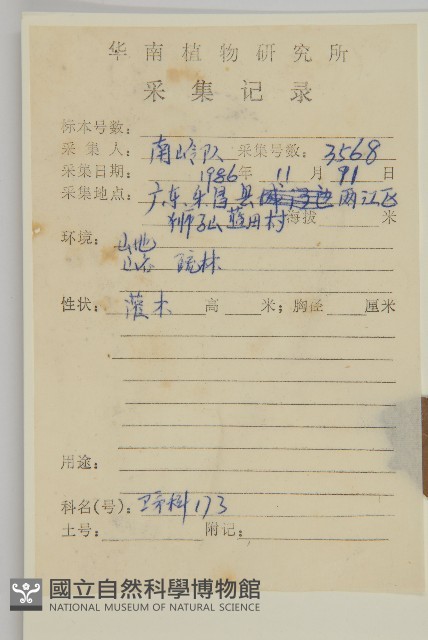 华南植物研究所
采集记录
标本号数：
采集人：南岭队 采集号数：3568
采集日期：1986年 11 月 21 日
采集地点：广东乐昌县 两江区
狮子山 蓝田村 海拔 米
环境：山地
疏林
性状：灌木 高 米；胸径 厘米
用途：
科名(号)：卫矛科 173
土号： 附记：
國立自然科學博物館
NATIONAL MUSEUM OF NATURAL SCIENCE